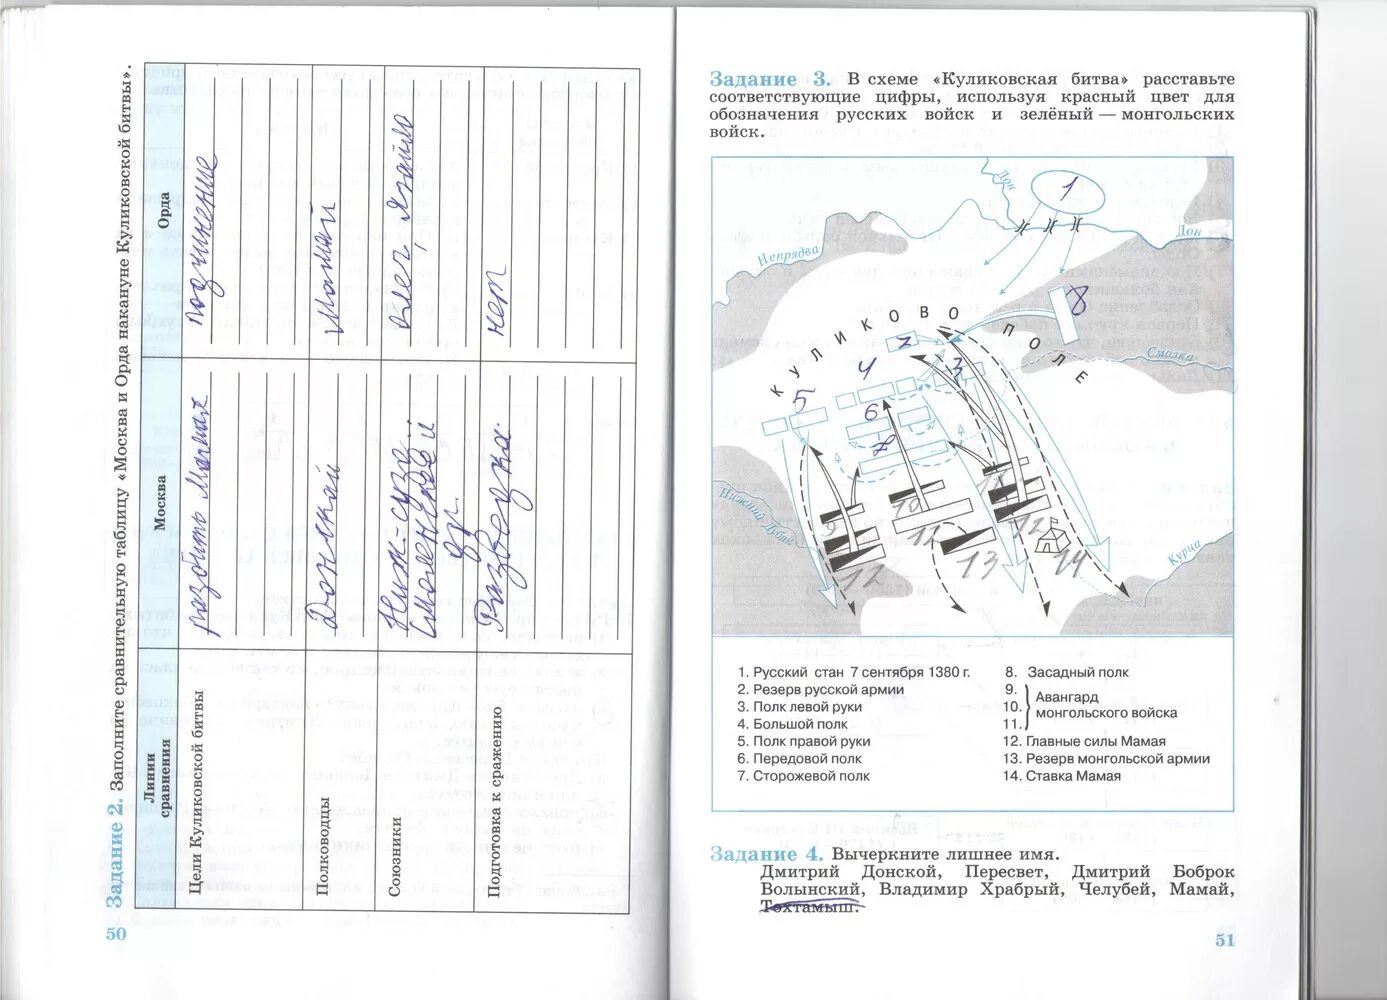 Задание 2. Заполните сравнительную таблицу «Москва и Орда накануне Куликовской битвы».
Линии сравнения
Москва
Орда
Цели Куликовской битвы
разбить Мамая
подчинение
Полководцы
Донской
Мамай
Союзники
Ниж-сузд.
Смоленское и
др.
Олег, Ягайло
Подготовка к сражению
Разведка.
нет
50
Задание 3. В схеме «Куликовская битва» расставьте
соответствующие цифры, используя красный цвет для
обозначения русских войск и зелёный — монгольских
войск.
Дон
1
Непрядва
Дон
8
КУЛИКОВО ПОЛЕ
Смолка
2
4
3
5
6
Нижний Дубик
9
10
11
12
12
12
13
14
Курца
1. Русский стан 7 сентября 1380 г.
2. Резерв русской армии
3. Полк левой руки
4. Большой полк
5. Полк правой руки
6. Передовой полк
7. Сторожевой полк
8. Засадный полк
9.
10. Авангард
монгольского войска
11.
12. Главные силы Мамая
13. Резерв монгольской армии
14. Ставка Мамая
Задание 4. Вычеркните лишнее имя.
Дмитрий Донской, Пересвет, Дмитрий Боброк
Волынский, Владимир Храбрый, Челубей, Мамай,
Тохтамыш.
51